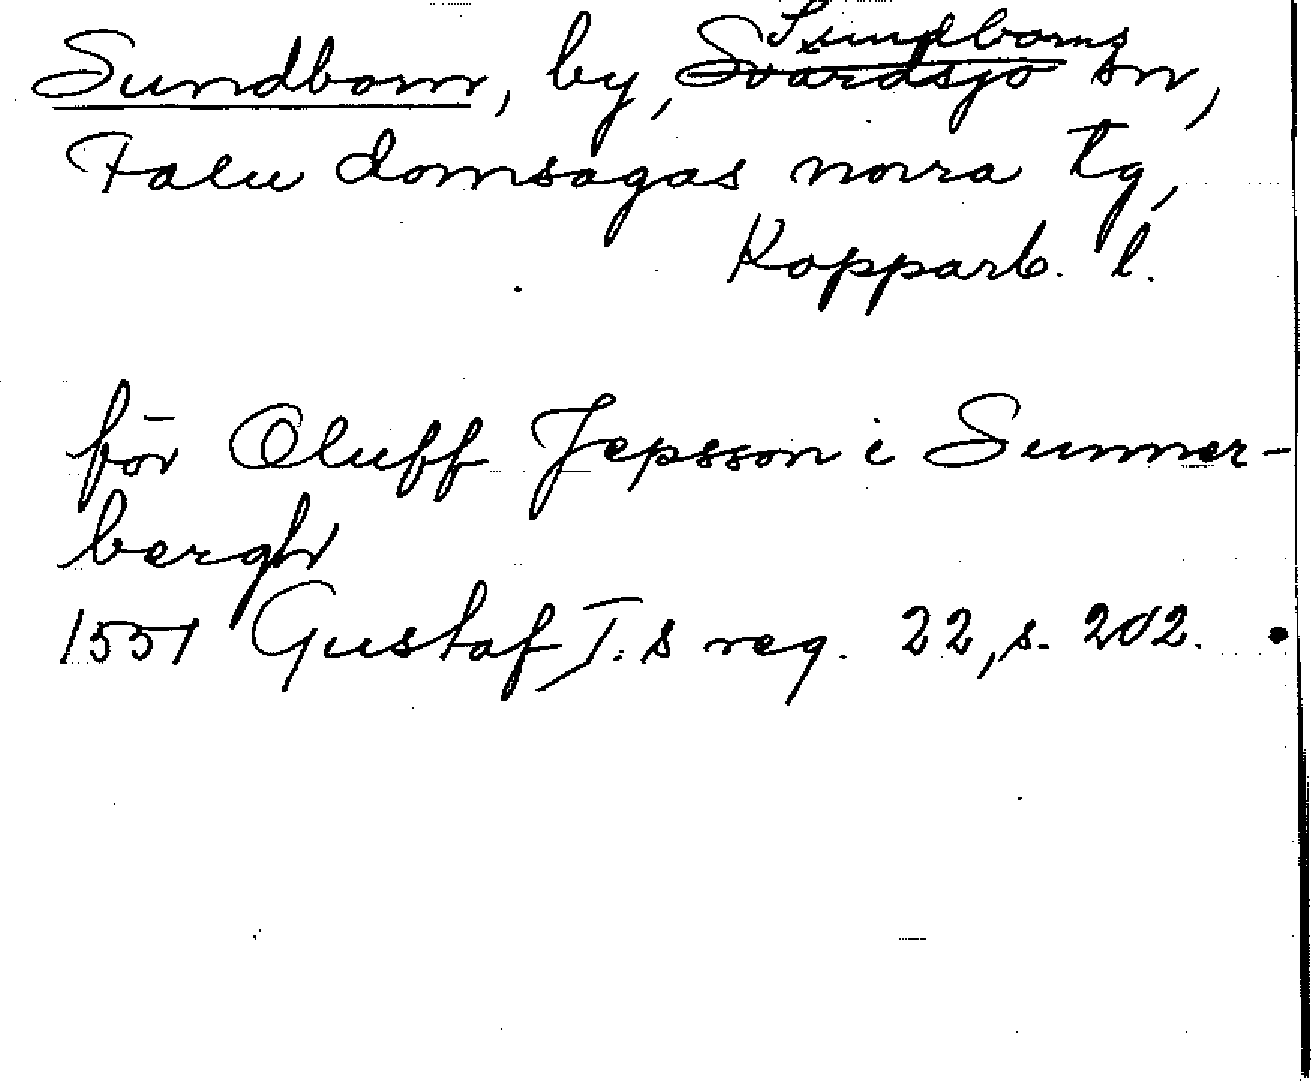 Sundborn, by, Sundborns sn,
Falu domsagas norra tg,
Kopparb. l.
för Oluff Jepsson i Sunner-
bergh
1551 Gustaf I:s reg. 22, s. 202.